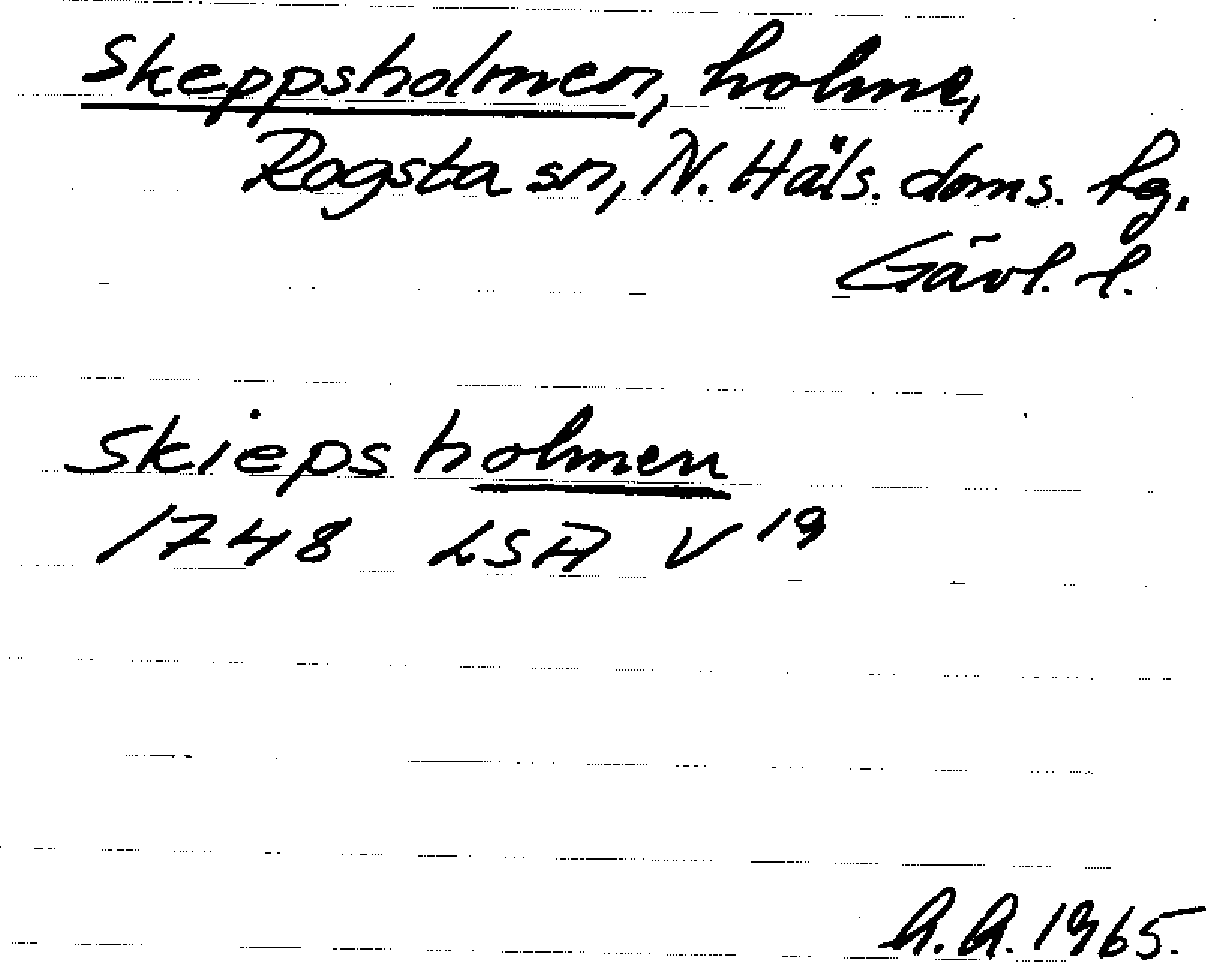 Skeppsholmen, holme,
Rogsta sn, N. Häls. doms. fg.
Gävl. l.
Skiepsholmen
1748 LSA V 19
h.h. 1965.